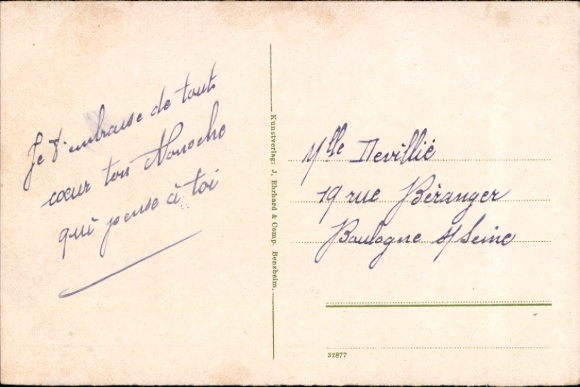 Je t'embrasse de tout
cœur ton Nonoche
qui pense à toi
Kunstverlag: J. Ehrhard & Comp. Bensheim.
Mlle Devillié
19 rue Béranger
Boulogne s/ Seine
23877